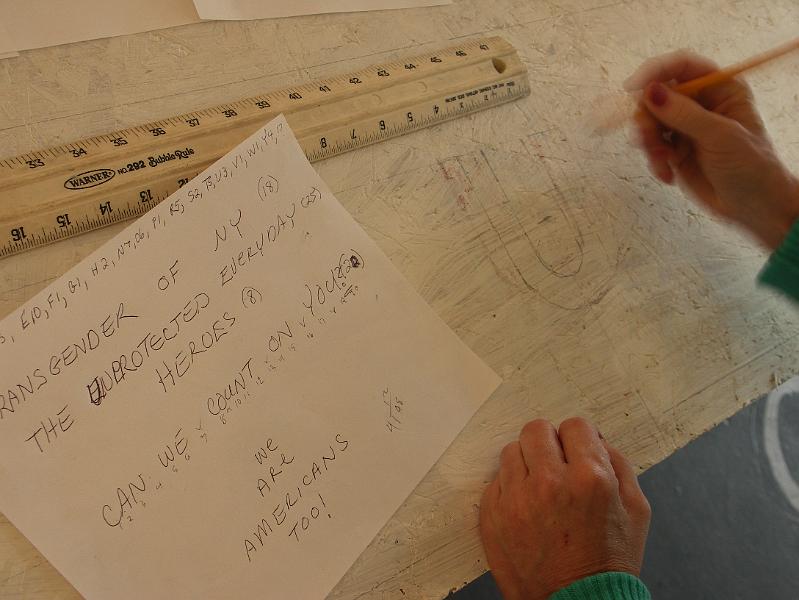 33 34 35 36 37 38 39 40 41 42 43 44 45 46 47
WARNER NO. 292 Bubble Rule
16 15 14 13 12 8 7 6 5 4
, E10, F1, G1, H2, N7, O6, P1, R5, S2, T3, U3, V1, W1, Y4,
RANSGENDER OF NY (18)
THE UNPROTECTED EVERYDAY (25)
HEROES (8)
CAN WE COUNT ON YOU?
WE
ARE
AMERICANS
TOO!